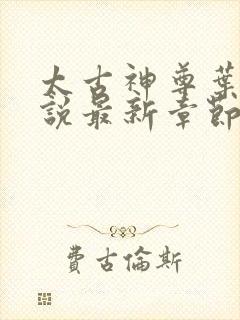 太古神尊葉
說最新章節
費古倫斯